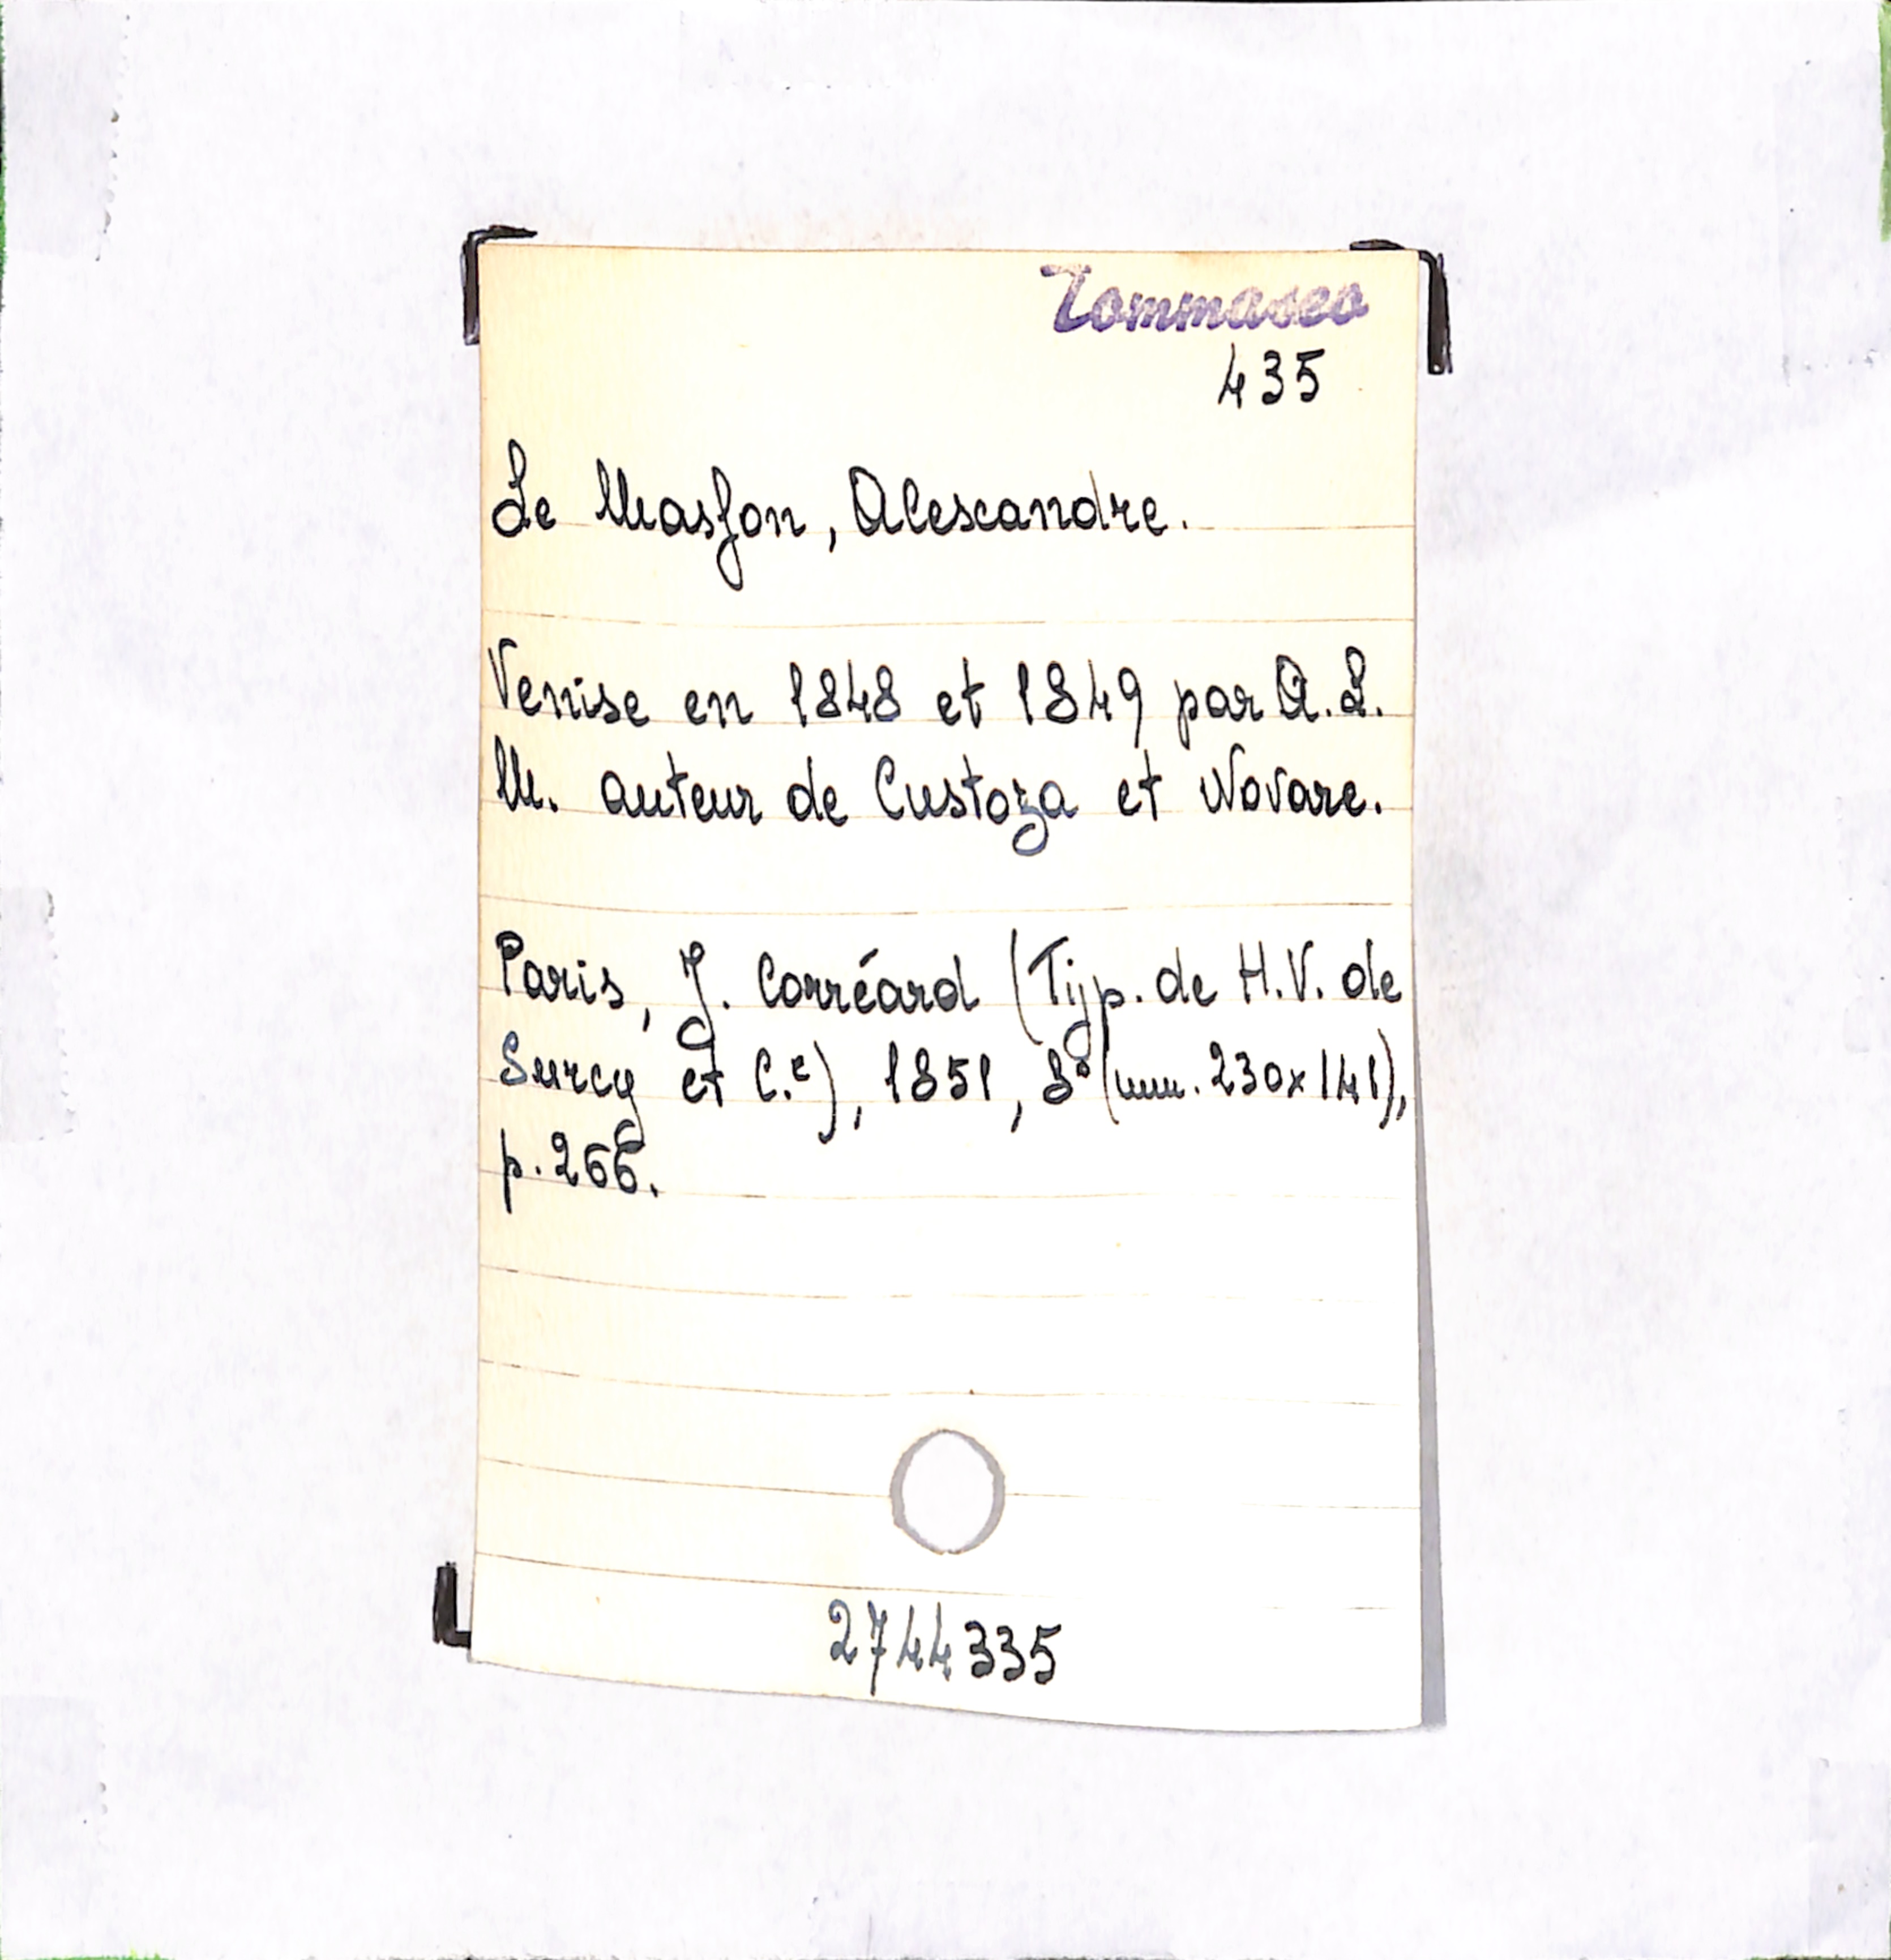 Tommaseo
435
Le Masson, Alexandre.
Venise en 1848 et 1849 par A. L.
M. auteur de Custoza et Novare.
Paris, J. Corréard (Typ. de H.V. de
Surcy et C.e), 1851, 8° (mm. 230x141),
p. 266.
2744335